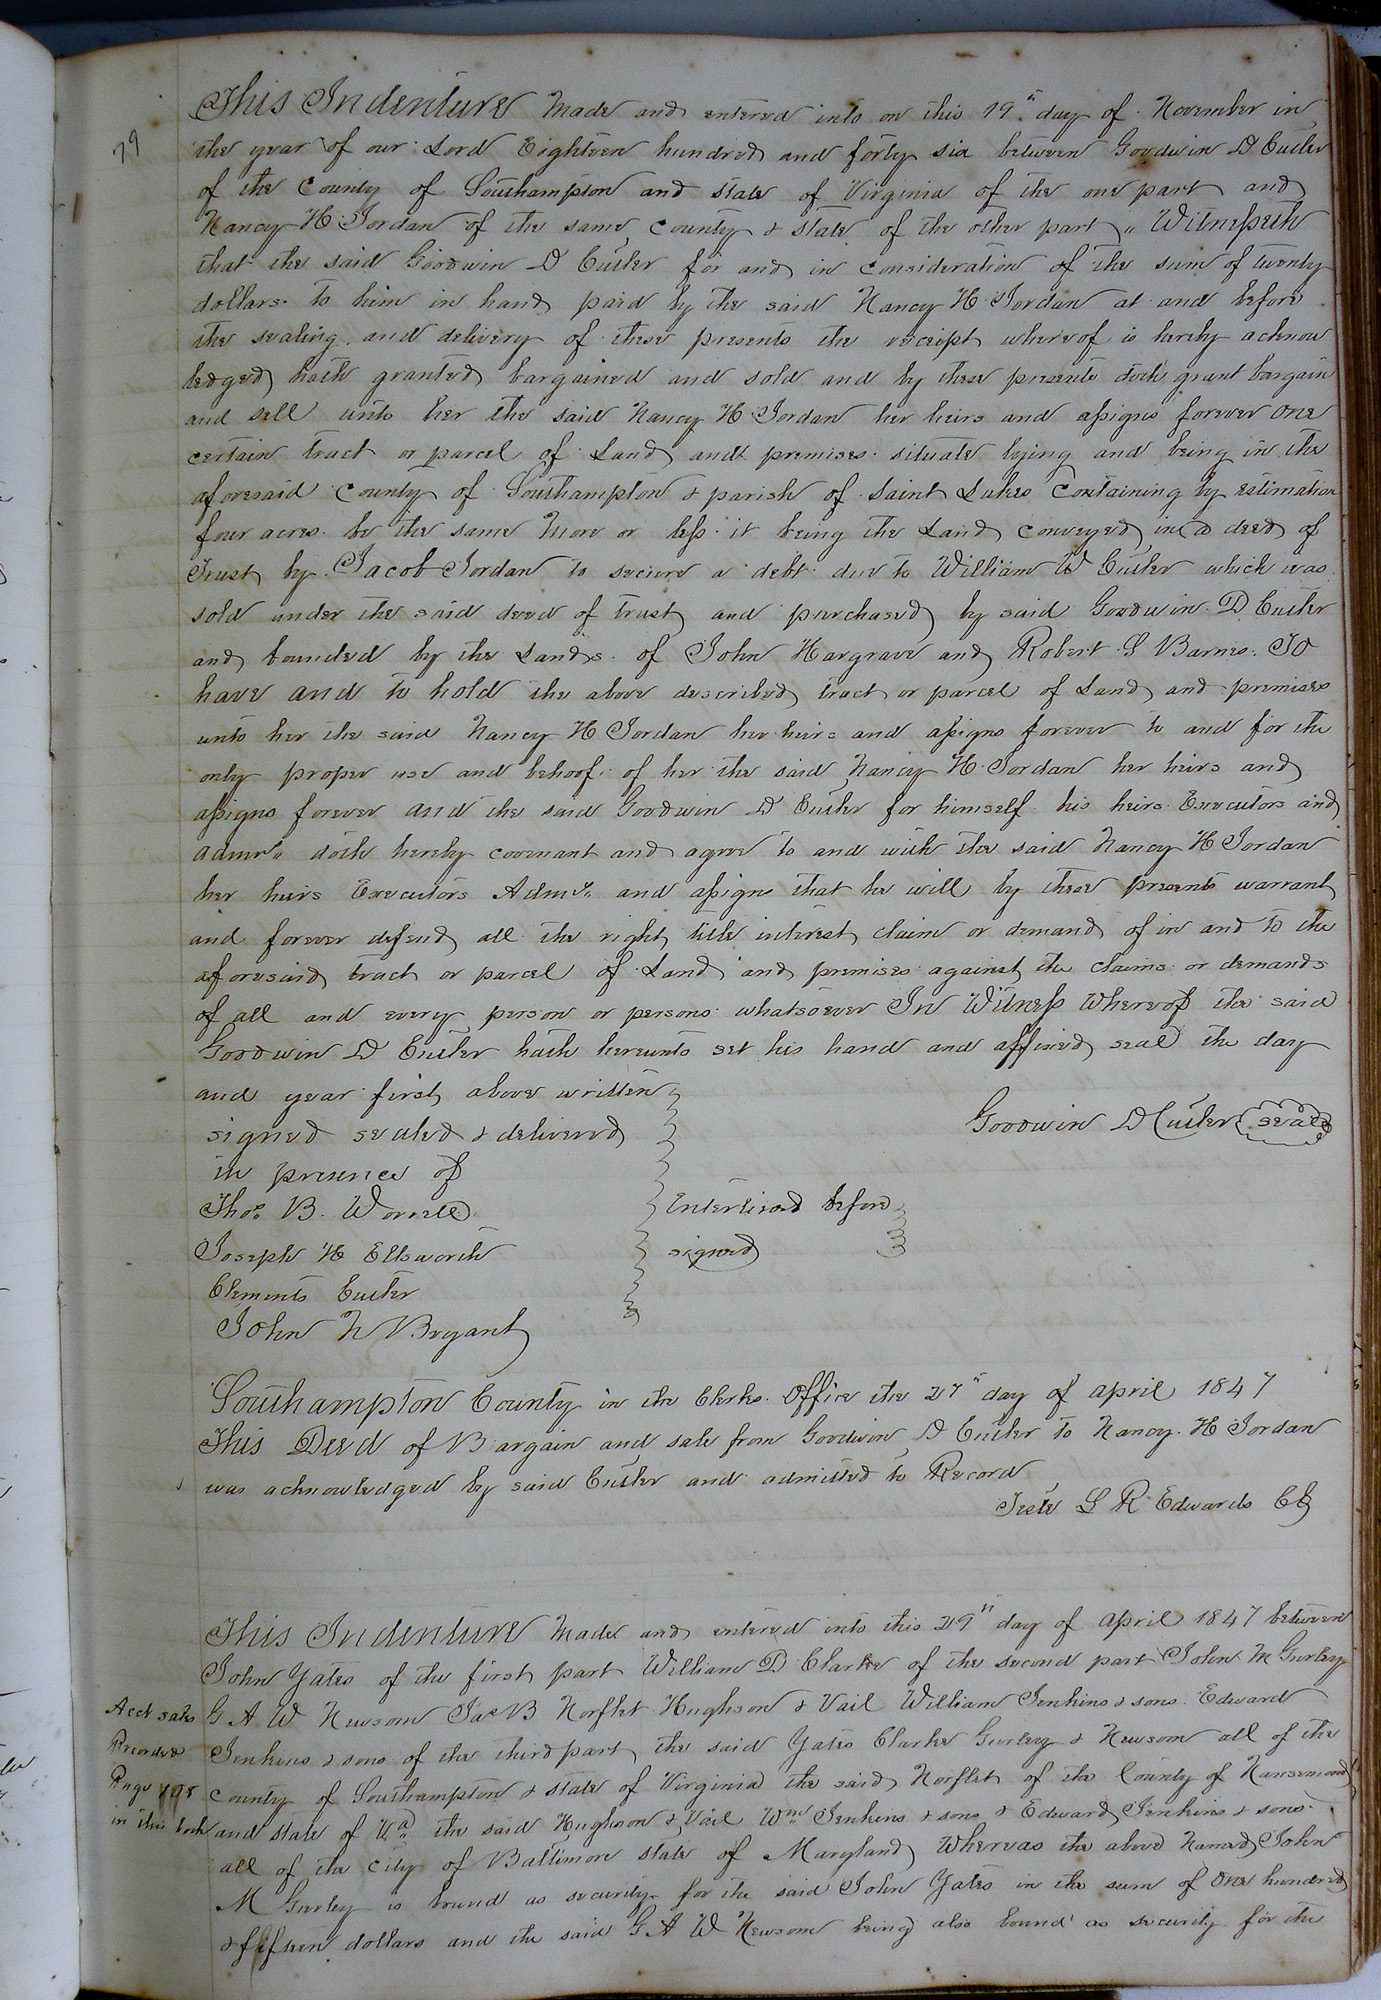 79
This Indenture Made and entered into on this 19th day of November in
the year of our Lord Eighteen hundred and forty six between Goodwin D Cutler
of the County of Southampton and state of Virginia of the one part and
Nancy H Jordan of the same County & State of the other part, Witnesseth
that the said Goodwin D Cutler for and in consideration of the sum of twenty
dollars to him in hand paid by the said Nancy H Jordan at and before
the sealing and delivery of these presents the receipt whereof is hereby acknow
ledged hath granted bargained and sold and by these presents doth grant bargain
and sell unto her the said Nancy H Jordan her heirs and assigns forever One
certain tract or parcel of Land and premises situate lying and being in the
aforesaid County of Southampton & parish of Saint Lukes Containing by estimation
four acres be the same more or less it being the Land conveyed in a deed of
Trust by Jacob Jordan to secure a debt due to William W Cutler which was
sold under the said deed of trust and purchased by said Goodwin D Cutler
and bounded by the Lands of John Hargrave and Robert S Barnes. To
have and to hold the above described tract or parcel of Land and premises
unto her the said Nancy H Jordan her heirs and assigns forever to and for the
only proper use and behoof of her the said Nancy H Jordan her heirs and
assigns forever and the said Goodwin D Cutler for himself his heirs Executors and
admrs doth hereby covenant and agree to and with the said Nancy H Jordan
her heirs Executors Admrs and assigns that he will by these presents warrant
and forever defend all the right title interest claim or demand of in and to the
aforesaid tract or parcel of Land and premises against the claims or demands
of all and every person or persons whatsoever In Witness Whereof the said
Goodwin D Cutler hath hereunto set his hand and affixed seal the day
and year first above written
Goodwin D Cutler seal
signed sealed & delivered
in presence of
Thos B. Worrell
Enterlined before
Joseph H Ellsworth
signed
Clements Cutler
John N Bryant
Southampton County in the Clerks Office the 27th day of april 1847
This Deed of Bargain and sale from Goodwin D Cutler to Nancy H Jordan
was acknowledged by said Cutler and admitted to Record
Teste L R Edwards Clk
This Indenture Made and entered into this 29th day of april 1847 between
John Yates of the first part William D Clarke of the second part John M Gurley
Acct sales
G A W Newsom Jas B Norflet Hughson & Vail William Jenkins & sons Edward
Recorded
Jenkins & sons of the third part the said Yates Clarke Gurley & Newsom all of the
Page
county of Southampton & state of Virginia the said Norflet of the County of Nansemond
in this book
and state of Va the said Hughson & Vail Wm Jenkins & sons & Edward Jenkins & sons
all of the city of Baltimore state of Maryland Whereas the above Named John
M Gurley is bound as security for the said John Yates in the sum of One hundred
& fifteen dollars and the said G A W Newsom being also bound as security for the